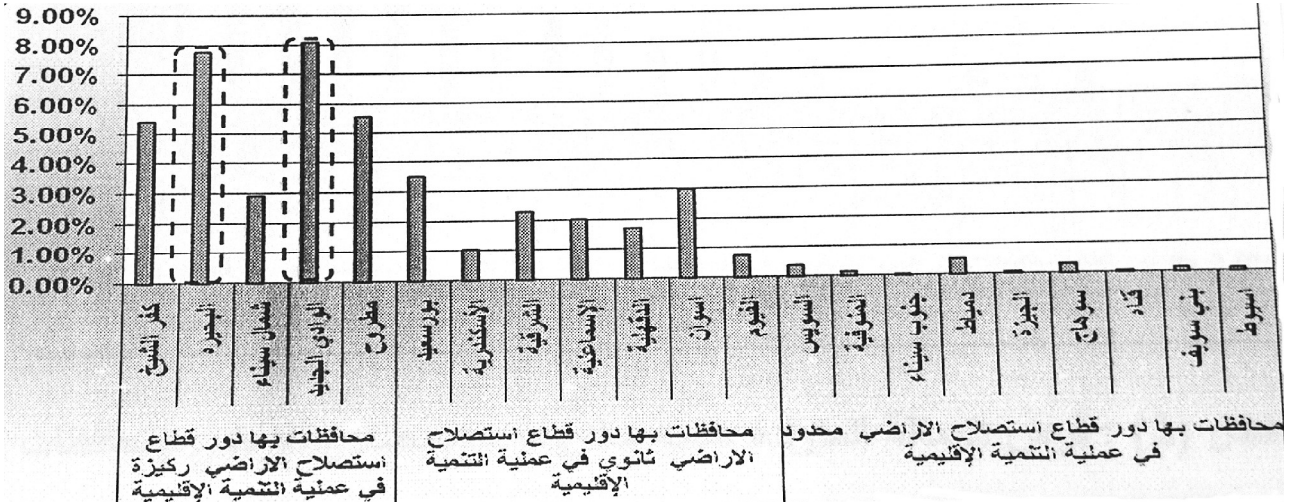 9.00%
8.00%
7.00%
6.00%
5.00%
4.00%
3.00%
2.00%
1.00%
0.00%
كفر الشيخ
البحيرة
شمال سيناء
الوادي الجديد
مطروح
بورسعيد
الإسكندرية
الشرقية
الإسماعيلية
الدقهلية
اسوان
الفيوم
السويس
المنوفية
جنوب سيناء
دمياط
الجيزة
سوهاج
قنا
بني سويف
اسيوط
محافظات بها دور قطاع
استصلاح الاراضي ركيزة
في عملية التنمية الإقليمية
محافظات بها دور قطاع استصلاح
الاراضي ثانوي في عملية التنمية
الإقليمية
محافظات بها دور قطاع استصلاح الاراضي محدود
في عملية التنمية الإقليمية